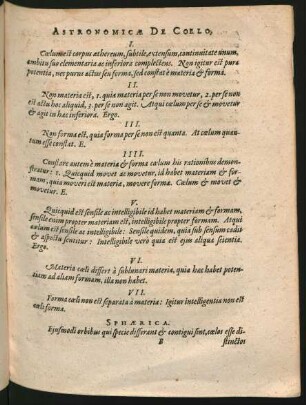 ASTRONOMICÆ DE COELO,
I.
Cœlum est corpus æthereum, subtile, extensum, continuitate unum,
ambitu suo elementaria ac inferiora complectens. Non igitur est pura
potentia, nec purus actus seu forma, sed constat è materia & forma.
II.
Non materia est, 1. quia materia per se non movetur, 2. per se non
est actu hoc aliquid, 3. per se non agit. Atqui cœlum per se & movetur
& agit in hæc inferiora. Ergo.
III.
Non forma est, quia forma per se non est quanta. At cœlum quan-
tum esse constat. E.
IIII.
Constare autem è materia & forma cœlum his rationibus demon-
stratur: 1. Quicquid movet ac movetur, id habet materiam & for-
mam, quia moveri est materiæ, movere formæ. Cœlum & movet &
movetur. E.
V.
Quicquid est sensile ac intelligibile id habet materiam & formam,
sensile enim propter materiam est, intelligibile propter formam. Atqui
cœlum est sensile ac intelligibile: Sensile quidem, quia sub sensum cadit
& aspectu sentitur: Intelligibile verò quia est ejus aliqua scientia.
Ergo.
VI.
Materia cœli differt à sublunari materia, quia hæc habet poten-
tiam ad aliam formam, illa non habet.
VII.
Forma cœli non est separata à materia: Igitur intelligentia non est
cœli forma.
SPHÆRICA.
Ejusmodi orbibus qui specie differant & contigui sint, cœlos esse di-
B stinctos